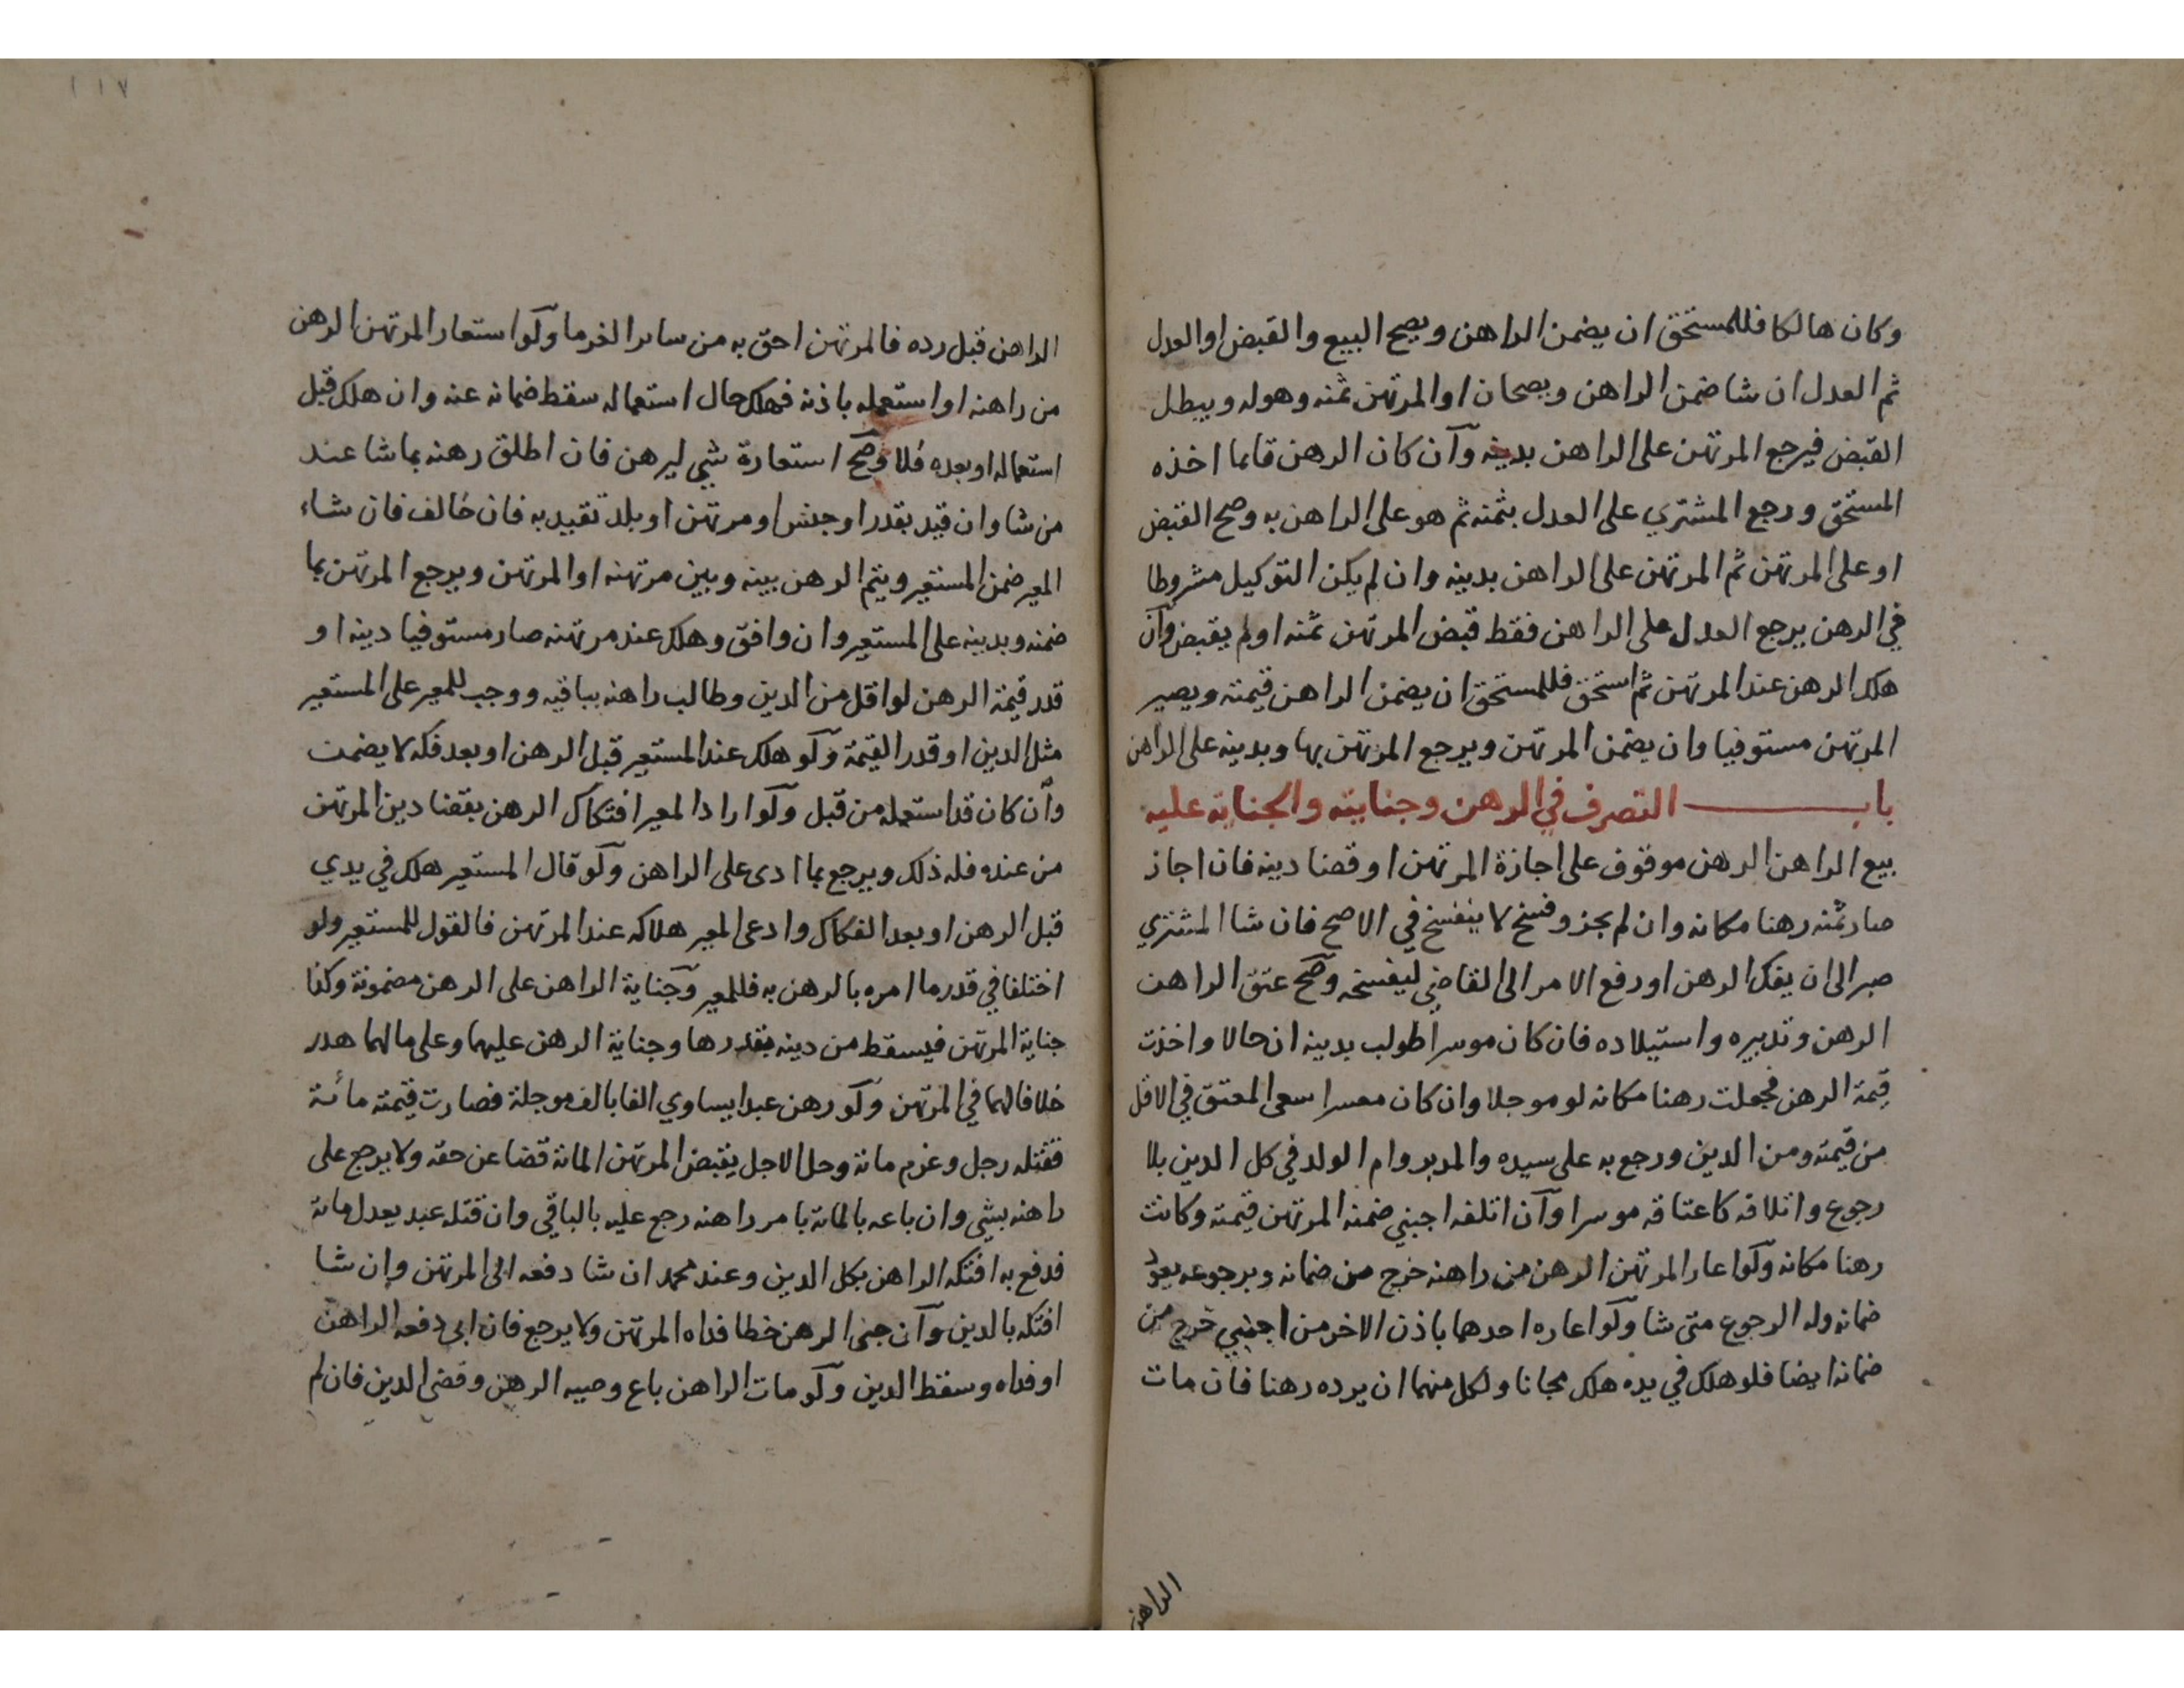 وكان هالكا فللمستحق ان يضمن الراهن ويصح البيع والقبض او العدل
ثم العدل ان شا ضمن الراهن ويصحان او المرتهن ثمنه وهوله ويبطل
القبض فيرجع المرتهن على الراهن بدينه وان كان الرهن قايما اخذه
المستحق ورجع المشتري على العدل بثمنه ثم هو على الراهن به وصح القبض
او على المرتهن ثم المرتهن على الراهن بدينه وان لم يكن التوكيل مشروطا
في الرهن يرجع العدل على الراهن فقط قبض المرتهن ثمنه اولم يقبض وان
هلك الرهن عند المرتهن ثم استحق فللمستحق ان يضمن الراهن قيمته ويصير
المرتهن مستوفيا وان يضمن المرتهن ويرجع المرتهن بها وبدينه على الراهن
باب التصرف في الرهن وجنايته والجناية عليه
بيع الراهن الرهن موقوف على اجازة المرتهن او قضا دينه فان اجاز
صار ثمنه رهنا مكانه وان لم يجز وفسخ لا ينفسخ في الاصح فان شا المشتري
صبر الى ان يفك الرهن او رفع الامر الى القاضي ليفسخه وصح عتق الراهن
الرهن وتدبيره واستيلاده فان كان موسرا طولب بدينه ان حالا واخذت
قيمة الرهن فجعلت رهنا مكانه لو موجلا وان كان معسرا سعى المعتق في الاقل
من قيمته ومن الدين ورجع به على سيده والمدبر وام الولد في كل الدين بلا
رجوع واتلافه كاعتاقه موسرا وان اتلفه اجنبي ضمنه المرتهن قيمته وكانت
رهنا مكانه ولو اعار المرتهن الرهن من راهنه خرج من ضمانه وبرجوعه يعود
ضمانه وله الرجوع متى شا ولو اعاره احدهما باذن الاخر من اجنبي خرج من
ضمانه ايضا فلو هلك في يده هلك مجانا ولكل منهما ان يرده رهنا فان مات
الراهن
١١٧
الراهن قبل رده فالمرتهن احق به من ساير الغرما ولو استعار المرتهن الرهن
من راهنه او استعمله باذنه فهلك حال استعماله سقط ضمانه عنه وان هلك قبل
استعماله او بعده فلا وصح استعارة شي ليرهن فان اطلق رهنه بما شا عند
من شا وان قيد بقدر او جنس او مرتهن او بلد تقيد به فان خالف فان شاء
المعير ضمن المستعير ويتم الرهن بينه وبين مرتهنه او المرتهن ويرجع المرتهن بما
ضمنه وبدينه على المستعير وان وافق وهلك عند مرتهنه صار مستوفيا دينه او
قدر قيمة الرهن لو اقل من الدين وطالب راهنه بباقيه ووجب للمعير على المستعير
مثل الدين او قدر القيمة ولو هلك عند المستعير قبل الرهن او بعد فكه لا يضمن
وان كان قد استعمله من قبل ولو اراد المعير افتكاك الرهن بقضا دين المرتهن
من عنده فله ذلك ويرجع بما ادى على الراهن ولو قال المستعير هلك في يدي
قبل الرهن او بعد الفكاك وادعى المعير هلاكه عند المرتهن فالقول للمستعير ولو
اختلفا في قدر ما امره بالرهن به فللمعير وجناية الراهن على الرهن مضمونة وكذا
جناية المرتهن فيسقط من دينه بقدرها وجناية الرهن عليهما وعلى مالهما هدر
خلافا لهما في المرتهن ولو رهن عبدا يساوي الفا بالف موجلة فصارت قيمته مائة
فقتله رجل وغرم ماية وحل الاجل يقبض المرتهن الماية قضا عن حقه ولا يرجع على
راهنه بشي وان باعه بالماية بامر راهنه رجع عليه بالباقي وان قتله عبد يعدل ماية
فدفع به افتكه الراهن بكل الدين وعند محمد ان شا دفعه الى المرتهن وان شا
افتكه بالدين وان جنى الرهن خطا فداه المرتهن ولا يرجع فان ابى دفعه الراهن
او فداه وسقط الدين ولو مات الراهن باع وصيه الرهن وقضى الدين فان لم